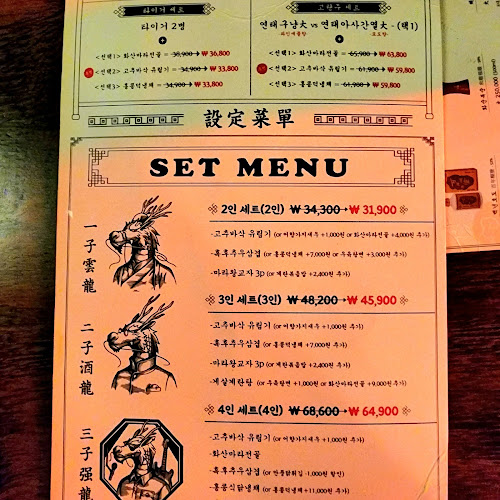 타이거 세트
타이거 2병
+
<선택1> 화산마라전골 = 38,900 → ₩ 36,800
<선택2> 고추바삭 유림기 = 34,900 → ₩ 33,800
<선택3> 홍콩덕냉채 = 34,900 → ₩ 33,800
고량주 세트
연태구냥大 vs 연태아사간옐大 - (택1)
+
<선택1> 화산마라전골 = 65,900 → ₩ 63,800
<선택2> 고추바삭 유림기 = 61,900 → ₩ 59,800
<선택3> 홍콩덕냉채 = 61,900 → ₩ 59,800
設定菜單
SET MENU
一子雲龍
2인 세트(2인) ₩ 34,300 → ₩ 31,900
-고추바삭 유림기 (or 어향가지새우 +1,000원 or 화산마라전골 +4,000원 추가)
-흑후추우삼겹 (or 홍콩덕냉채 +7,000원 or 우육탕면 +3,000원 추가)
-마라왕교자 3p (or 계란볶음밥 +2,400원 추가)
二子酒龍
3인 세트(3인) ₩ 48,200 → ₩ 45,900
-고추바삭 유림기 (or 어향가지새우 +1,000원 추가)
-흑후추우삼겹 (or 홍콩덕냉채 +7,000원 추가)
-마라왕교자 3p (or 계란볶음밥 +2,400원 추가)
-게살계란탕 (or 우육탕면 +1,000원 or 화산마라전골 +9,000원 추가)
三子强龍
4인 세트(4인) ₩ 68,600 → ₩ 64,900
-고추바삭 유림기 (or 어향가지새우 +1,000원 추가)
-화산마라전골
-흑후추우삼겹 (or 깐풍닭튀김 -1,000원 할인)
-홍콩식닭냉채 (or 홍콩덕냉채 +11,000원 추가)
250,000 (500ml)